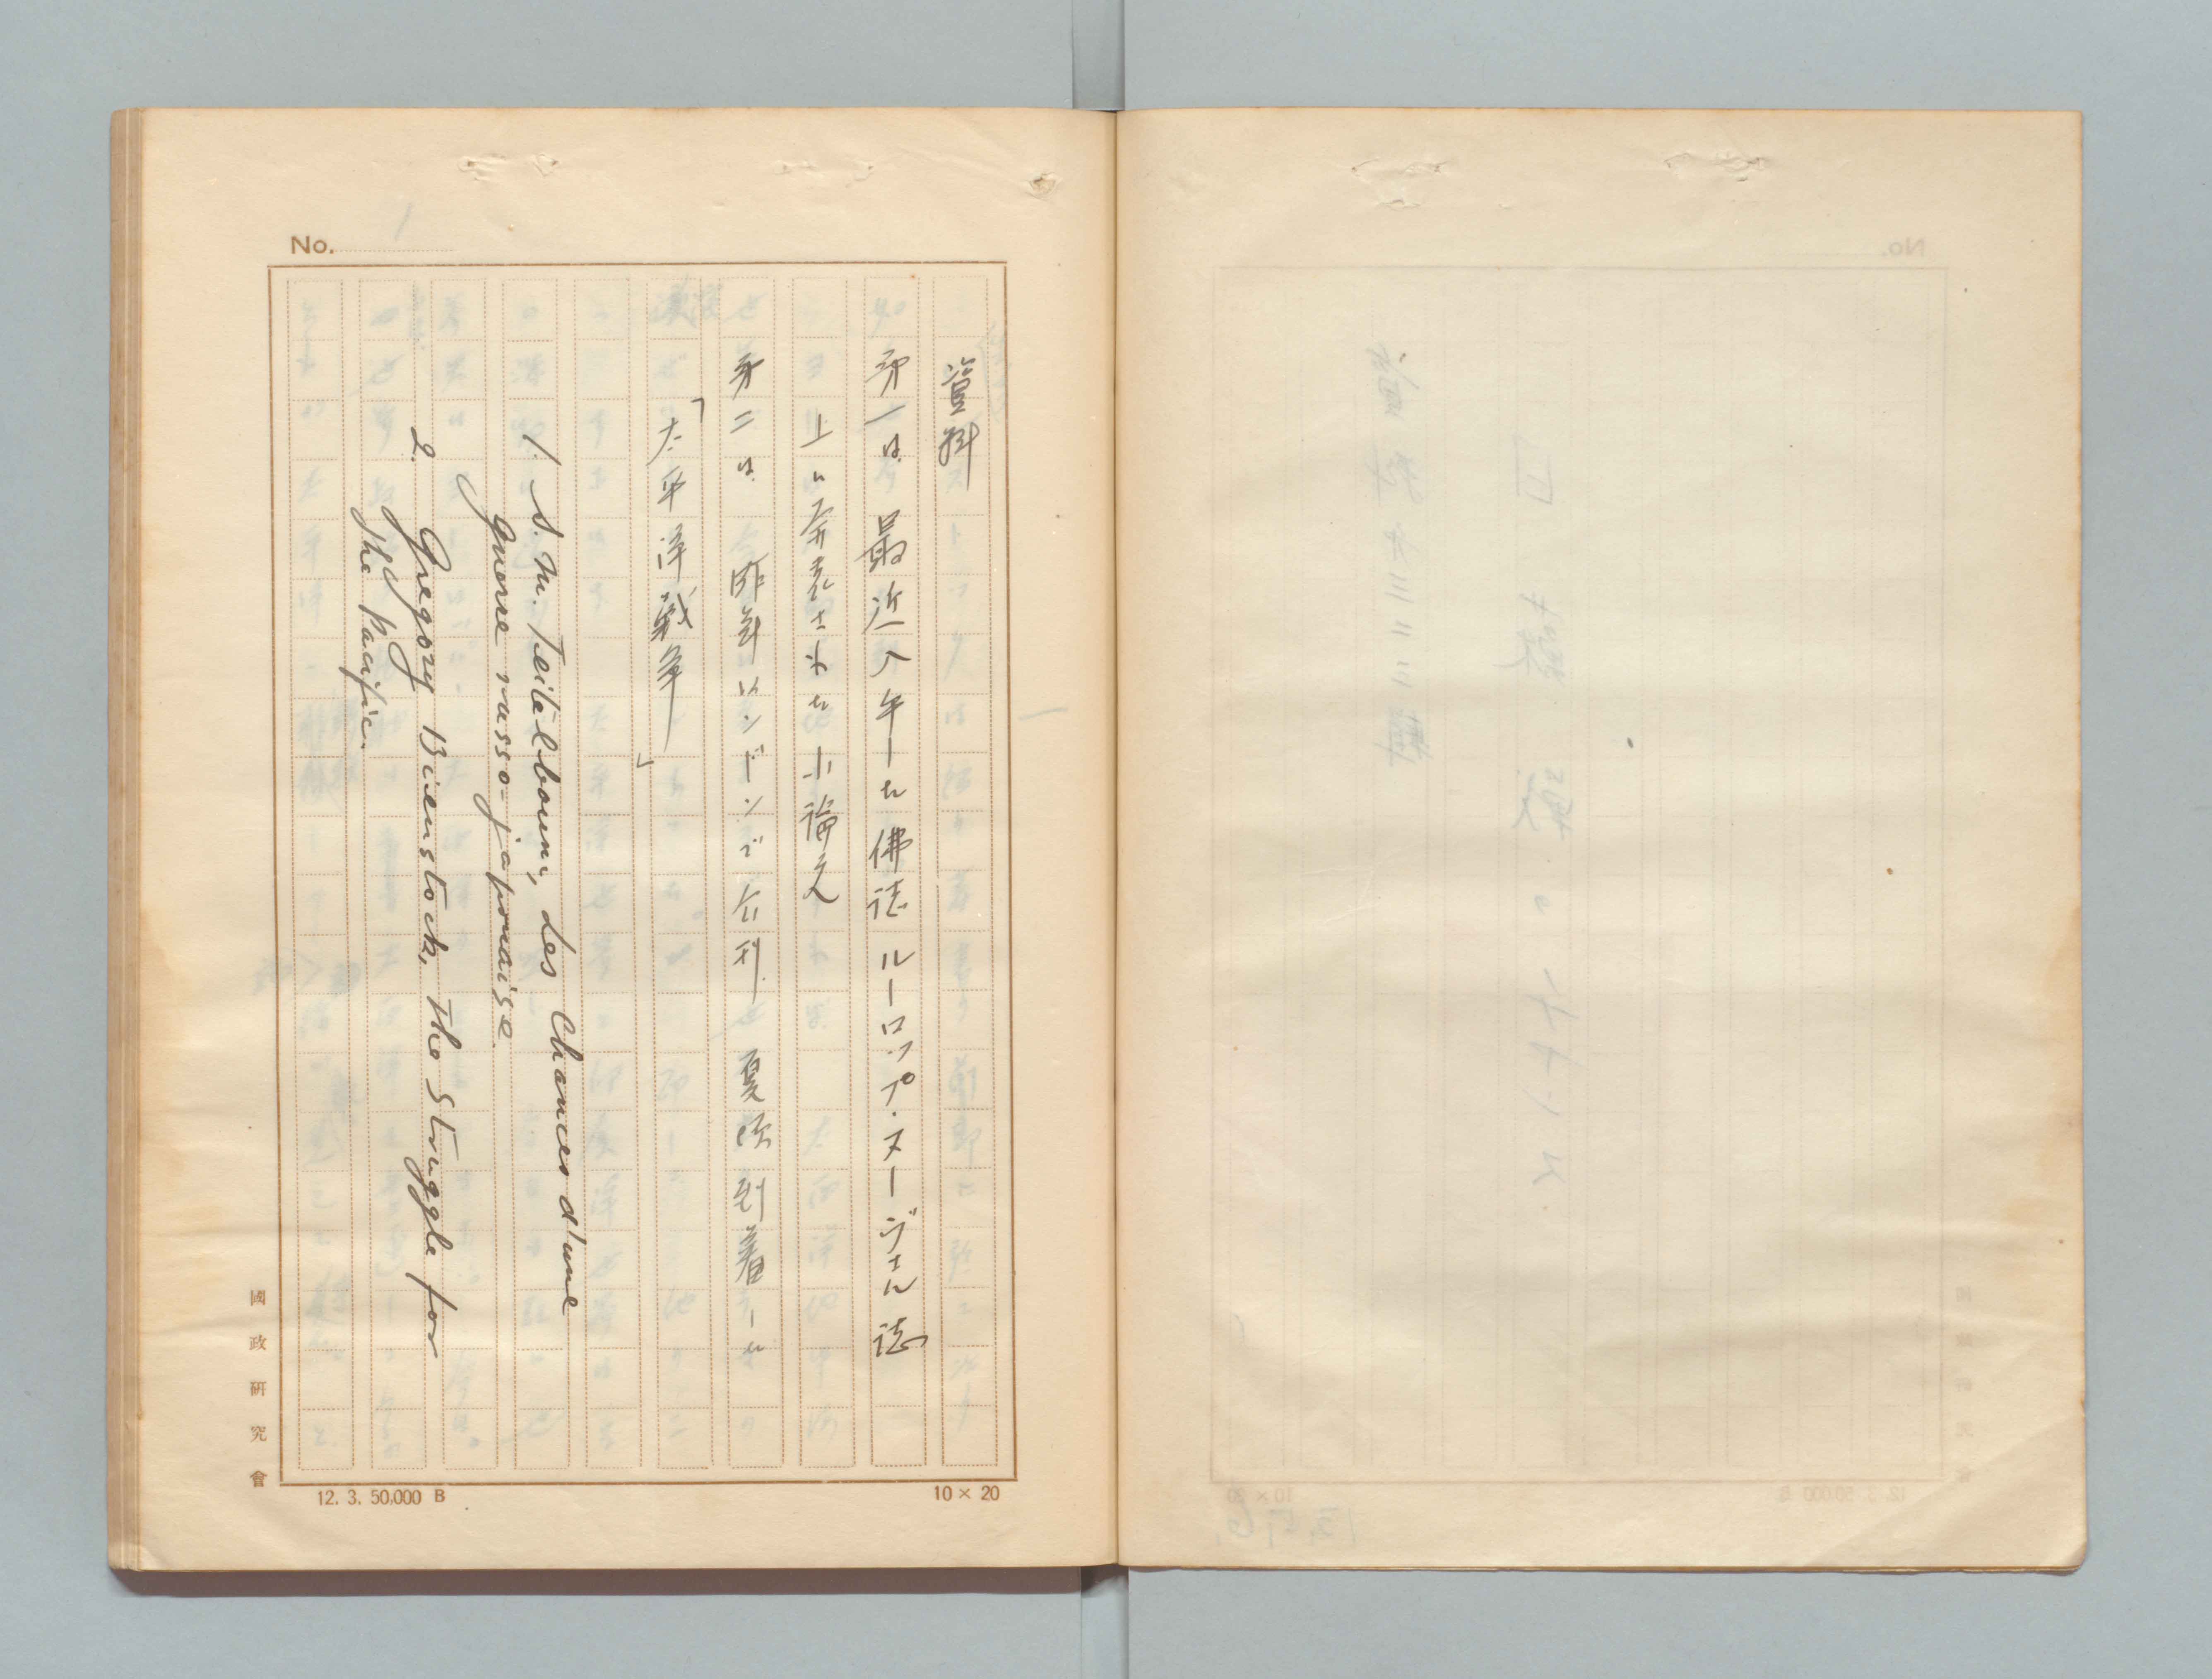 No.
資料
第一は、最近入手した佛誌ルーロップ・ヌーヴェル誌
上に発表された小論文
第二は、昨年ロンドンで公刊、夏頃到着した
「太平洋戦争」
1. S. M. Teitelbaum, Les Chances d'une
guerre russo-japonaise.
2. Gregory Bienstock, The Struggle for
the Pacific.
國政研究會
12. 3. 50,000 B
10 × 20